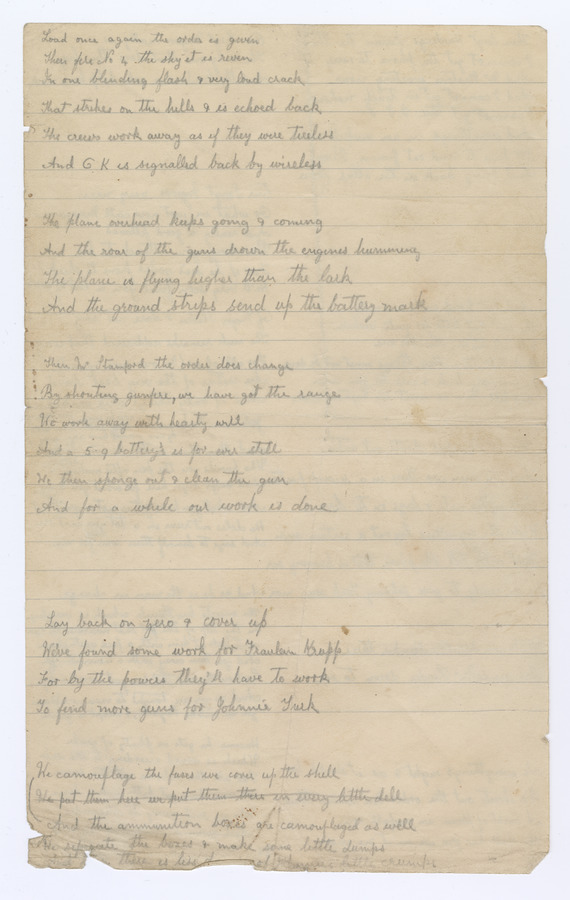 Load once again the order is given
Then fire No 4, the sky it is riven
In one blinding flash & very loud crack
That strikes on the hills & is echoed back
The crews work away as if they were tireless
And G K is signalled back by wireless
The plane overhead keeps going & coming
And the roar of the guns drown the engines humming
The plane is flying higher than the lark
And the ground strips send up the battery mark
Then Mr Stamford the order does change
By shouting gunfire, we have got the range
We work away with hearty will
And a 5-9 battery's is for ever still
We then sponge out & clean the gun
And for a while our work is done
Lay back on zero & cover up
We've found some work for Fraulein Krupp
For by the powers they'll have to work
To find more guns for Johnnie Turk
We camouflage the fuses we cover up the shell
We put them here we put them there in every little dell
And the ammunition boxes are camouflaged as well
We separate the boxes & make some little dumps
there is less little crumps